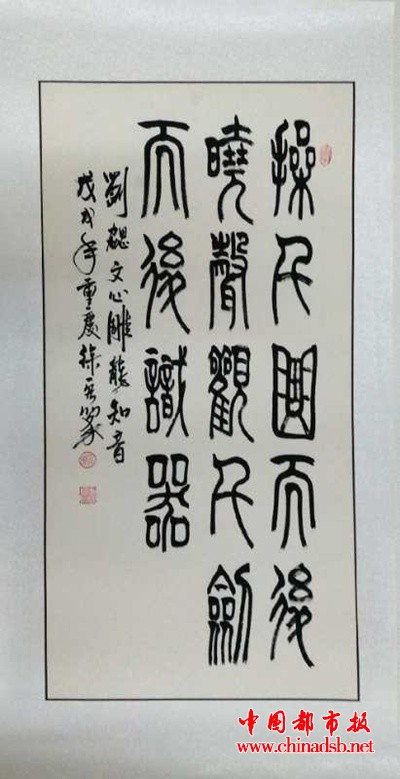 操千曲而後
曉聲觀千劍
而後識器
劉勰文心雕龍知音
戊戌年重慶徐篆
中国都市报
www.chinadsb.net